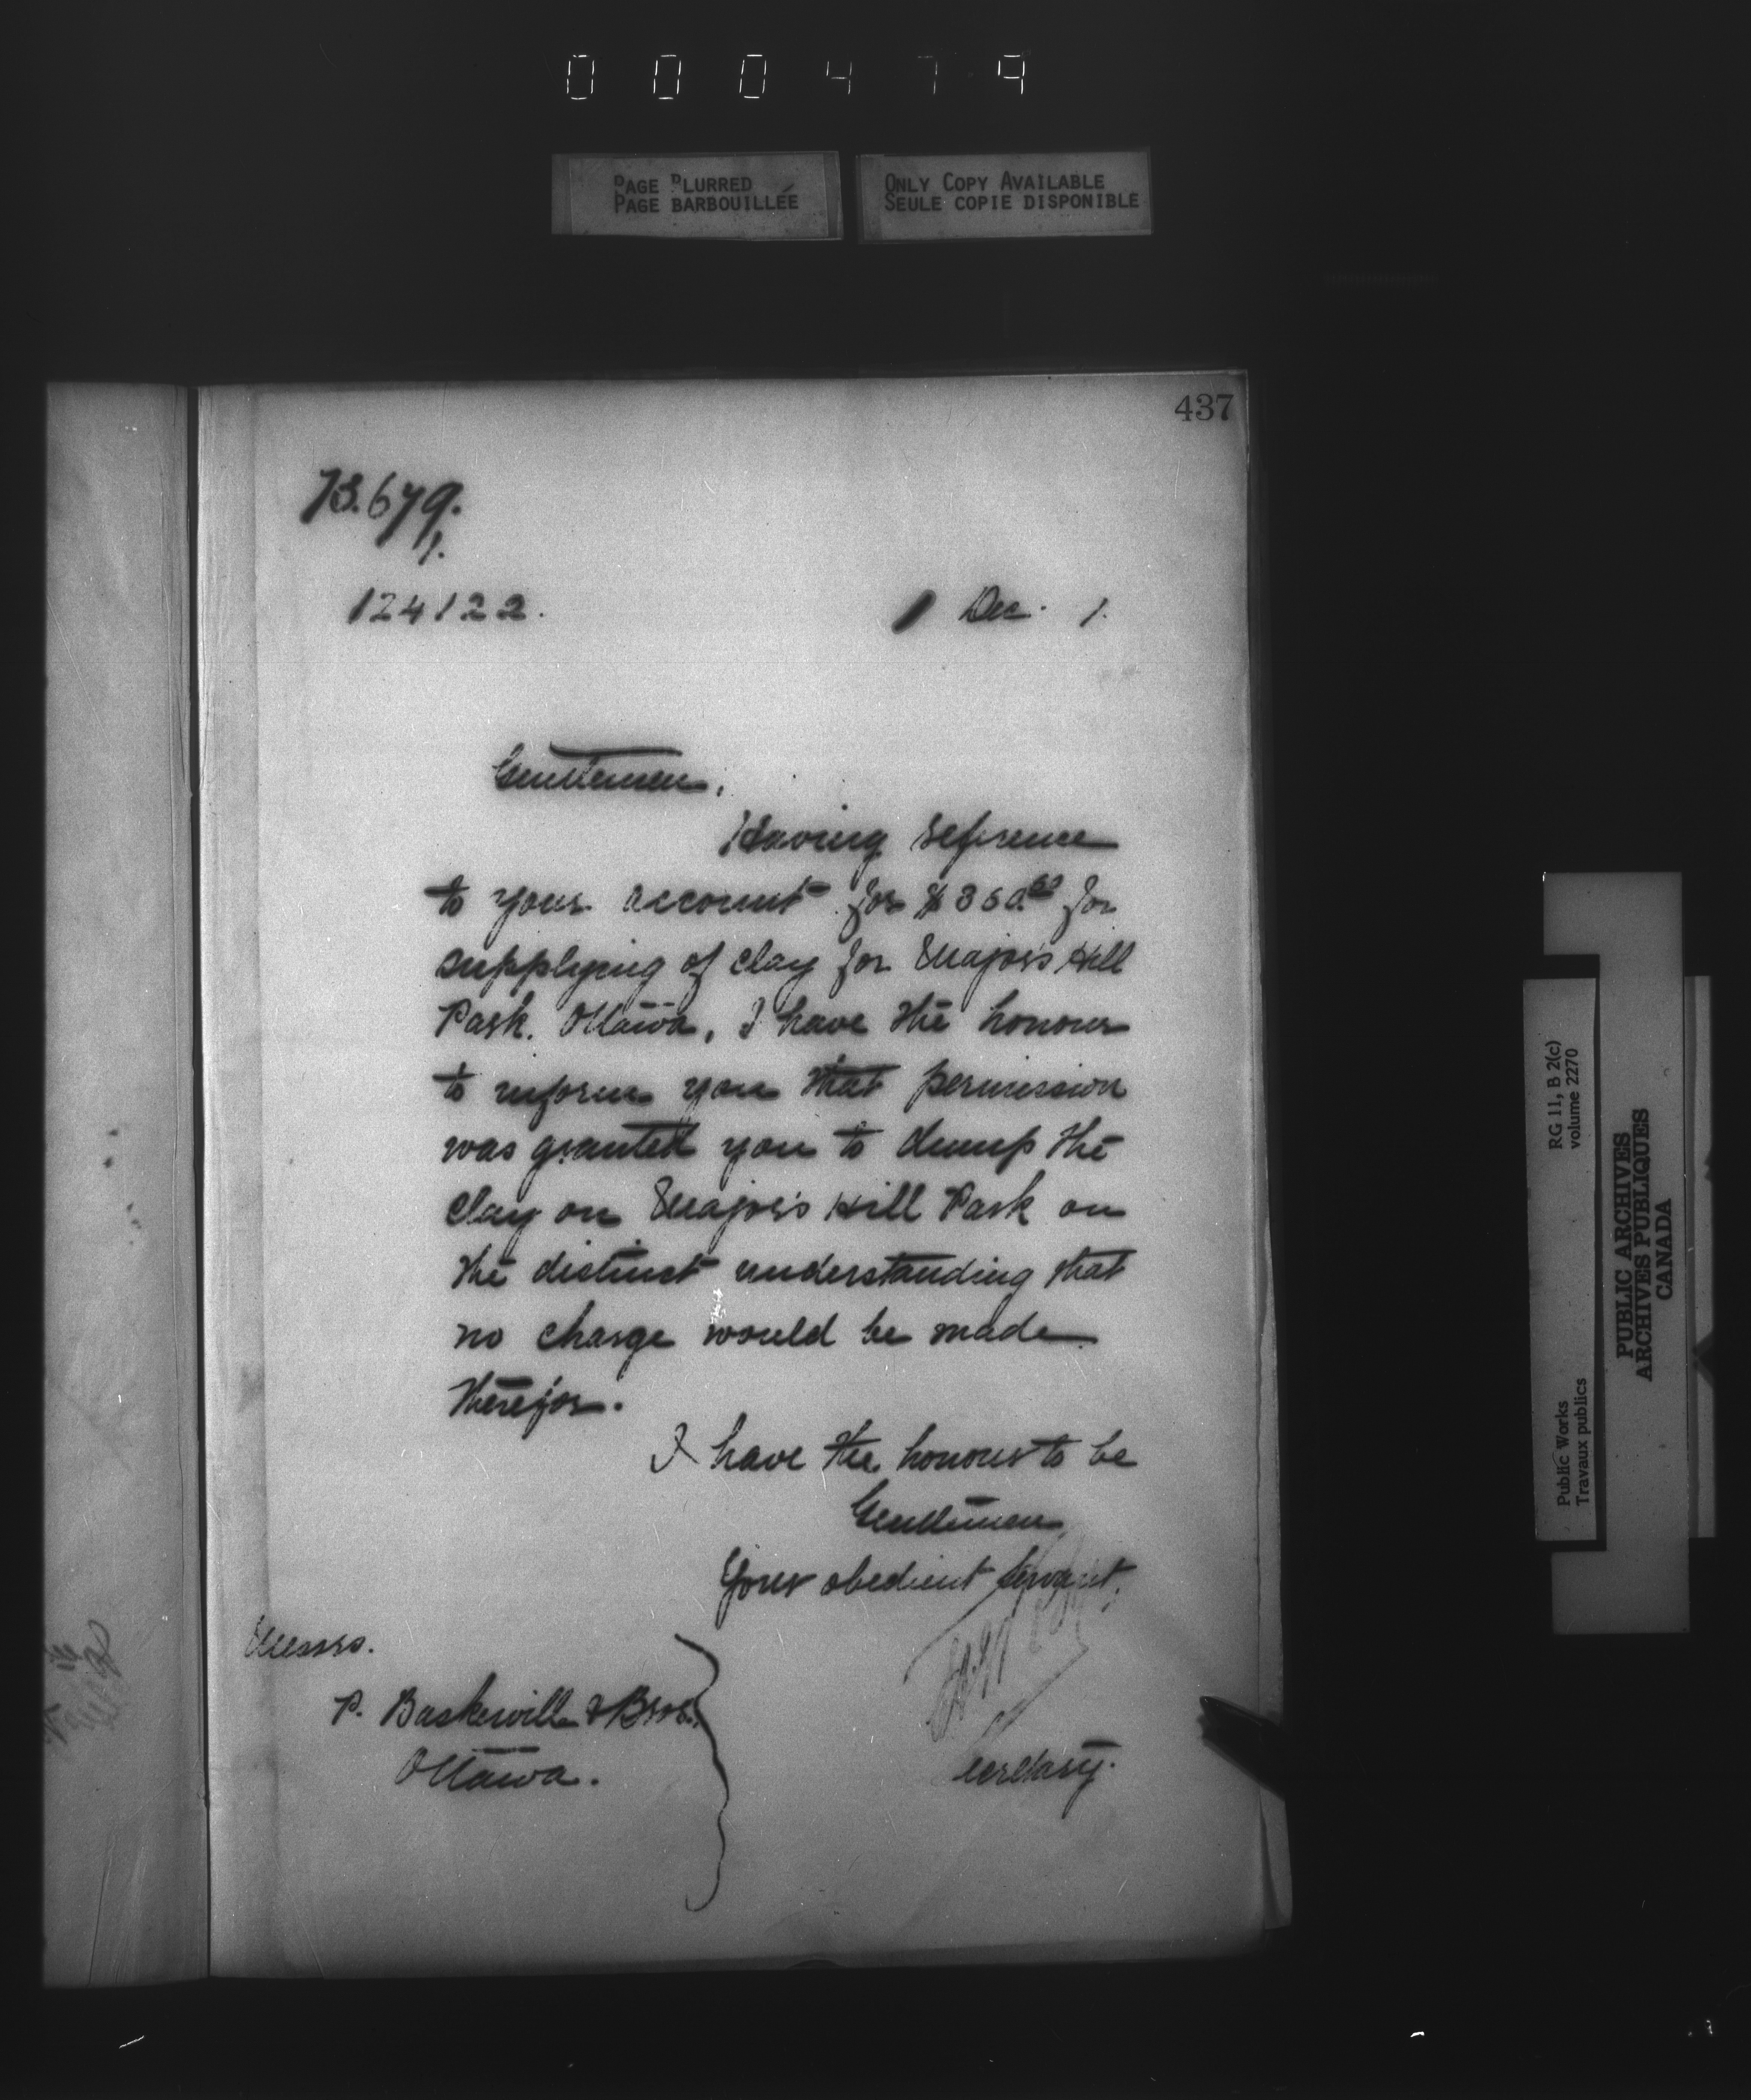 000479
PAGE BLURRED
PAGE BARBOUILLÉE
ONLY COPY AVAILABLE
SEULE COPIE DISPONIBLE
437
73.679.
124122.
1 Dec. 1.
Gentlemen,
Having reference
to your account for $360.00 for
supplying of clay for Major's Hill
Park, Ottawa, I have the honour
to inform you that permission
was granted you to dump the
clay on Major's Hill Park on
the distinct understanding that
no charge would be made
therefor.
I have the honour to be
Gentlemen
Your obedient servant,
Secretary.
Messrs.
P. Baskerville & Bros.,
Ottawa.
RG 11, B 2(c)
volume 2270
Public Works
Travaux publics
PUBLIC ARCHIVES
ARCHIVES PUBLIQUES
CANADA